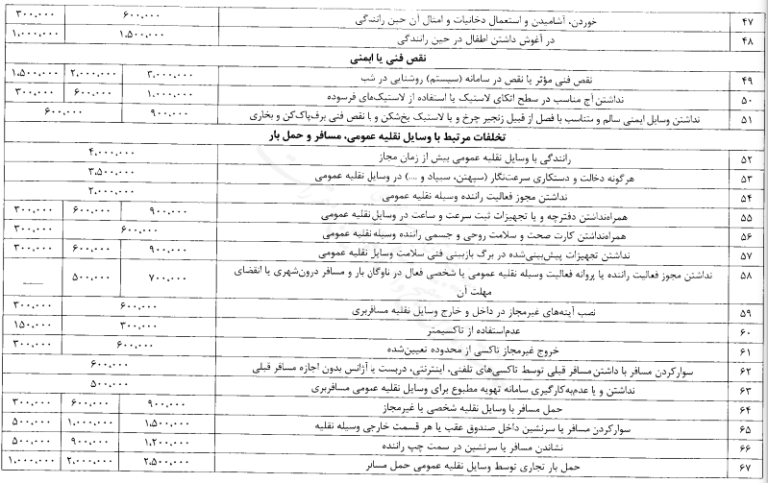 ۴۷ خوردن، آشامیدن و استعمال دخانیات و امثال آن حین رانندگی ۶۰۰،۰۰۰ ۳۰۰،۰۰۰
۴۸ در آغوش داشتن اطفال در حین رانندگی ۱،۵۰۰،۰۰۰ ۱،۰۰۰،۰۰۰
نقص فنی یا ایمنی
۴۹ نقص فنی مؤثر یا نقص در سامانه (سیستم) روشنایی در شب ۳،۰۰۰،۰۰۰ ۲،۰۰۰،۰۰۰ ۱،۵۰۰،۰۰۰
۵۰ نداشتن آج مناسب در سطح اتکای لاستیک یا استفاده از لاستیک‌های فرسوده ۱،۰۰۰،۰۰۰ ۶۰۰،۰۰۰ ۳۰۰،۰۰۰
۵۱ نداشتن وسایل ایمنی سالم و متناسب با فصل از قبیل زنجیر چرخ و یا لاستیک یخ‌شکن و یا نقص فنی برف‌پاک‌کن و بخاری ۹۰۰،۰۰۰ ۶۰۰،۰۰۰
تخلفات مرتبط با وسایل نقلیه عمومی، مسافر و حمل بار
۵۲ رانندگی با وسایل نقلیه عمومی بیش از زمان مجاز ۴،۰۰۰،۰۰۰
۵۳ هرگونه دخالت و دستکاری سرعت‌نگار (سپهتن، سیپاد و ....) در وسایل نقلیه عمومی ۳،۵۰۰،۰۰۰
۵۴ نداشتن مجوز فعالیت راننده وسیله نقلیه عمومی ۲،۰۰۰،۰۰۰
۵۵ همراه‌نداشتن دفترچه و یا تجهیزات ثبت سرعت و ساعت در وسایل نقلیه عمومی ۹۰۰،۰۰۰ ۶۰۰،۰۰۰ ۳۰۰،۰۰۰
۵۶ همراه‌نداشتن کارت صحت و سلامت روحی و جسمی راننده وسیله نقلیه عمومی ۶۰۰،۰۰۰ ۳۰۰،۰۰۰
۵۷ نداشتن تجهیزات پیش‌بینی‌شده در برگ بازبینی فنی سلامت وسایل نقلیه عمومی ۹۰۰،۰۰۰ ۶۰۰،۰۰۰ ۳۰۰،۰۰۰
۵۸ نداشتن مجوز فعالیت راننده یا پروانه فعالیت وسیله نقلیه عمومی یا شخصی فعال در ناوگان بار و مسافر درون‌شهری یا انقضای ۷۰۰،۰۰۰ ۵۰۰،۰۰۰
مهلت آن
۵۹ نصب آینه‌های غیرمجاز در داخل و خارج وسایل نقلیه مسافربری ۶۰۰،۰۰۰ ۳۰۰،۰۰۰
۶۰ عدم‌استفاده از تاکسیمتر ۳۰۰،۰۰۰ ۱۵۰،۰۰۰
۶۱ خروج غیرمجاز تاکسی از محدوده تعیین‌شده ۶۰۰،۰۰۰ ۳۰۰،۰۰۰
۶۲ سوارکردن مسافر با داشتن مسافر قبلی توسط تاکسی‌های تلفنی، اینترنتی، دربست یا آژانس بدون اجازه مسافر قبلی ۶۰۰،۰۰۰
۶۳ نداشتن و یا عدم‌به‌کارگیری سامانه تهویه مطبوع برای وسایل نقلیه عمومی مسافربری ۵۰۰،۰۰۰
۶۴ حمل مسافر با وسایل نقلیه شخصی یا غیرمجاز ۹۰۰،۰۰۰ ۶۰۰،۰۰۰ ۳۰۰،۰۰۰
۶۵ سوارکردن مسافر یا سرنشین داخل صندوق عقب یا هر قسمت خارجی وسیله نقلیه ۱،۵۰۰،۰۰۰ ۱،۰۰۰،۰۰۰ ۵۰۰،۰۰۰
۶۶ نشاندن مسافر یا سرنشین در سمت چپ راننده ۱،۲۰۰،۰۰۰ ۹۰۰،۰۰۰ ۵۰۰،۰۰۰
۶۷ حمل بار تجاری توسط وسایل نقلیه عمومی حمل مسافر ۲،۵۰۰،۰۰۰ ۲،۰۰۰،۰۰۰ ۱،۰۰۰،۰۰۰